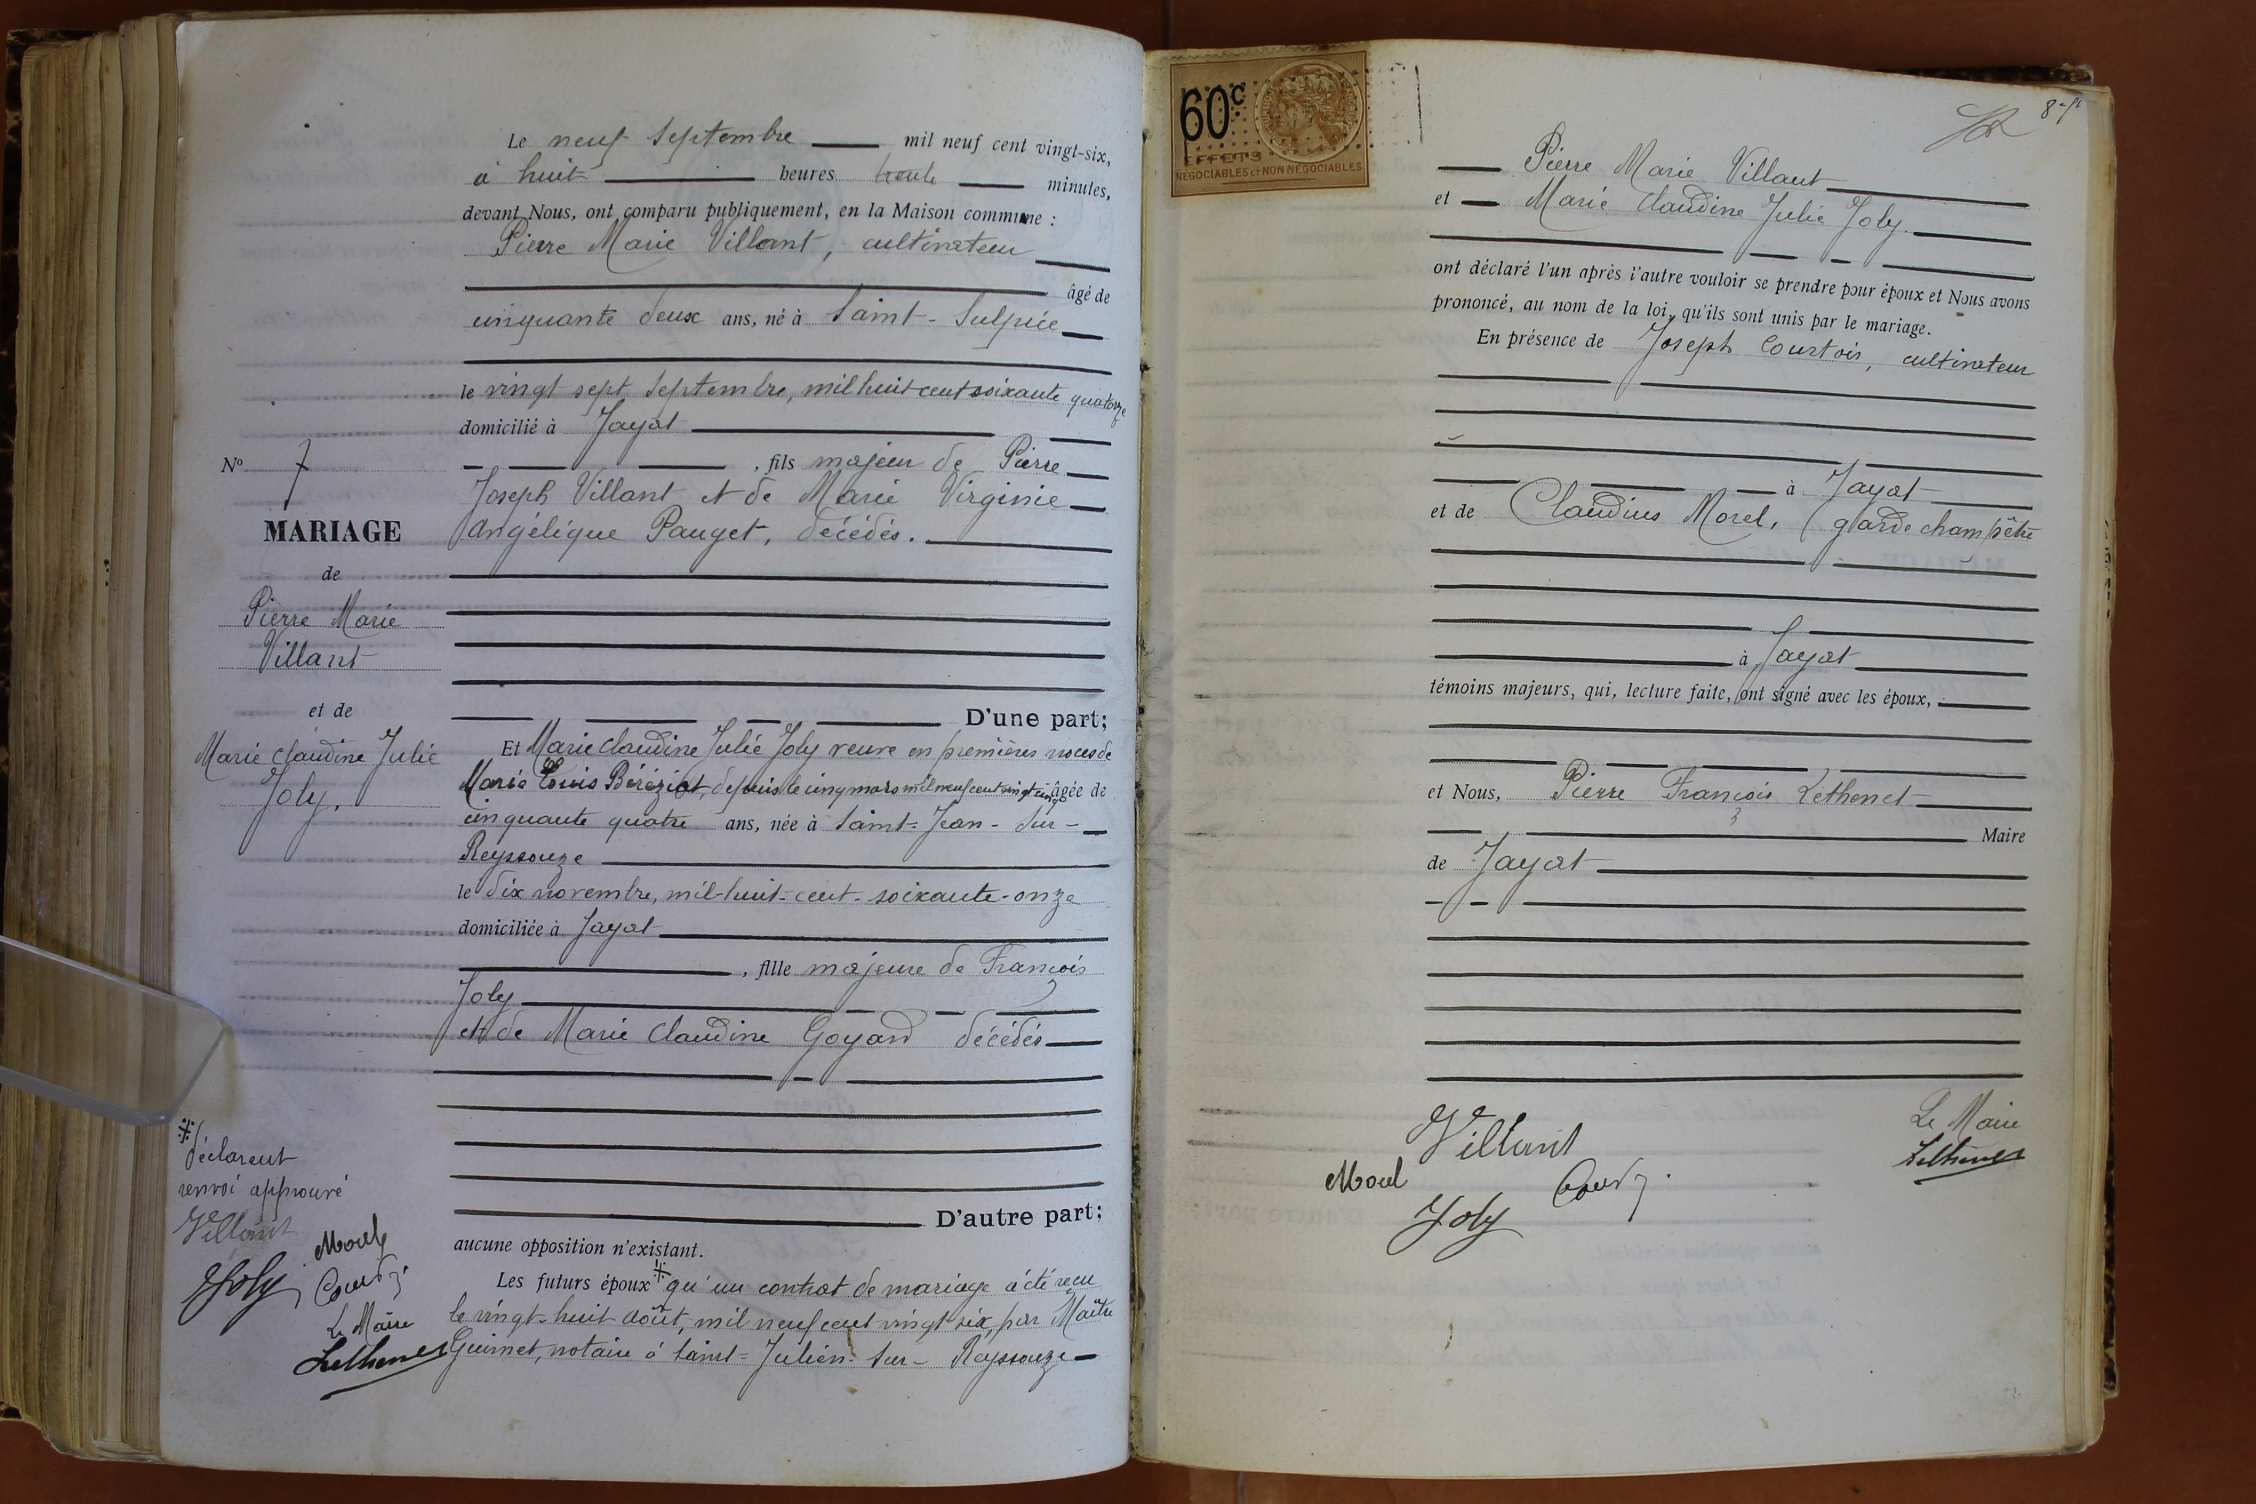 Le neuf Septembre mil neuf cent vingt-six,
à huit heures trente minutes,
devant Nous, ont comparu publiquement, en la Maison commune :
Pierre Marie Villant, cultivateur
âgé de
cinquante deux ans, né à Saint-Sulpice
le vingt sept Septembre, mil huit cent soixante quatorze
domicilié à Jayat
, fils majeur de Pierre
Joseph Villant et de Marie Virginie
Angélique Pauget, décédés.
D'une part;
Et Marie Claudine Julie Joly veuve en premières noces de
Marie Louis Béréziat, depuis le cinq mars mil neuf cent vingt cinq âgée de
cinquante quatre ans, née à Saint-Jean-Sur-
Reyssouze
le dix novembre, mil-huit-cent-soixante-onze
domiciliée à Jayat
, fille majeure de François
Joly
et de Marie Claudine Goyard décédés
D'autre part;
aucune opposition n'existant.
Les futurs époux * qu'un contrat de mariage a été reçu
le vingt-huit août, mil neuf cent vingt six, par Maître
Guimet, notaire à Saint-Julien-Sur-Reyssouze
N° 7
MARIAGE
de
Pierre Marie
Villant
et de
Marie Claudine Julie
Joly.
*
déclarent
renvoi approuvé
Villant
Morel
Joly
Le Maire
Lethenet
60c
EFFETS
NÉGOCIABLES ET NON NÉGOCIABLES
Pierre Marie Villant
et Marie Claudine Julie Joly.
ont déclaré l'un après l'autre vouloir se prendre pour époux et Nous avons
prononcé, au nom de la loi, qu'ils sont unis par le mariage.
En présence de Joseph Courtois, cultivateur
à Jayat
et de Claudius Morel, garde champêtre
à Jayat
témoins majeurs, qui, lecture faite, ont signé avec les époux,
et Nous, Pierre François Lethenet
Maire
de Jayat
Villant
Le Maire
Lethenet
Morel
Joly